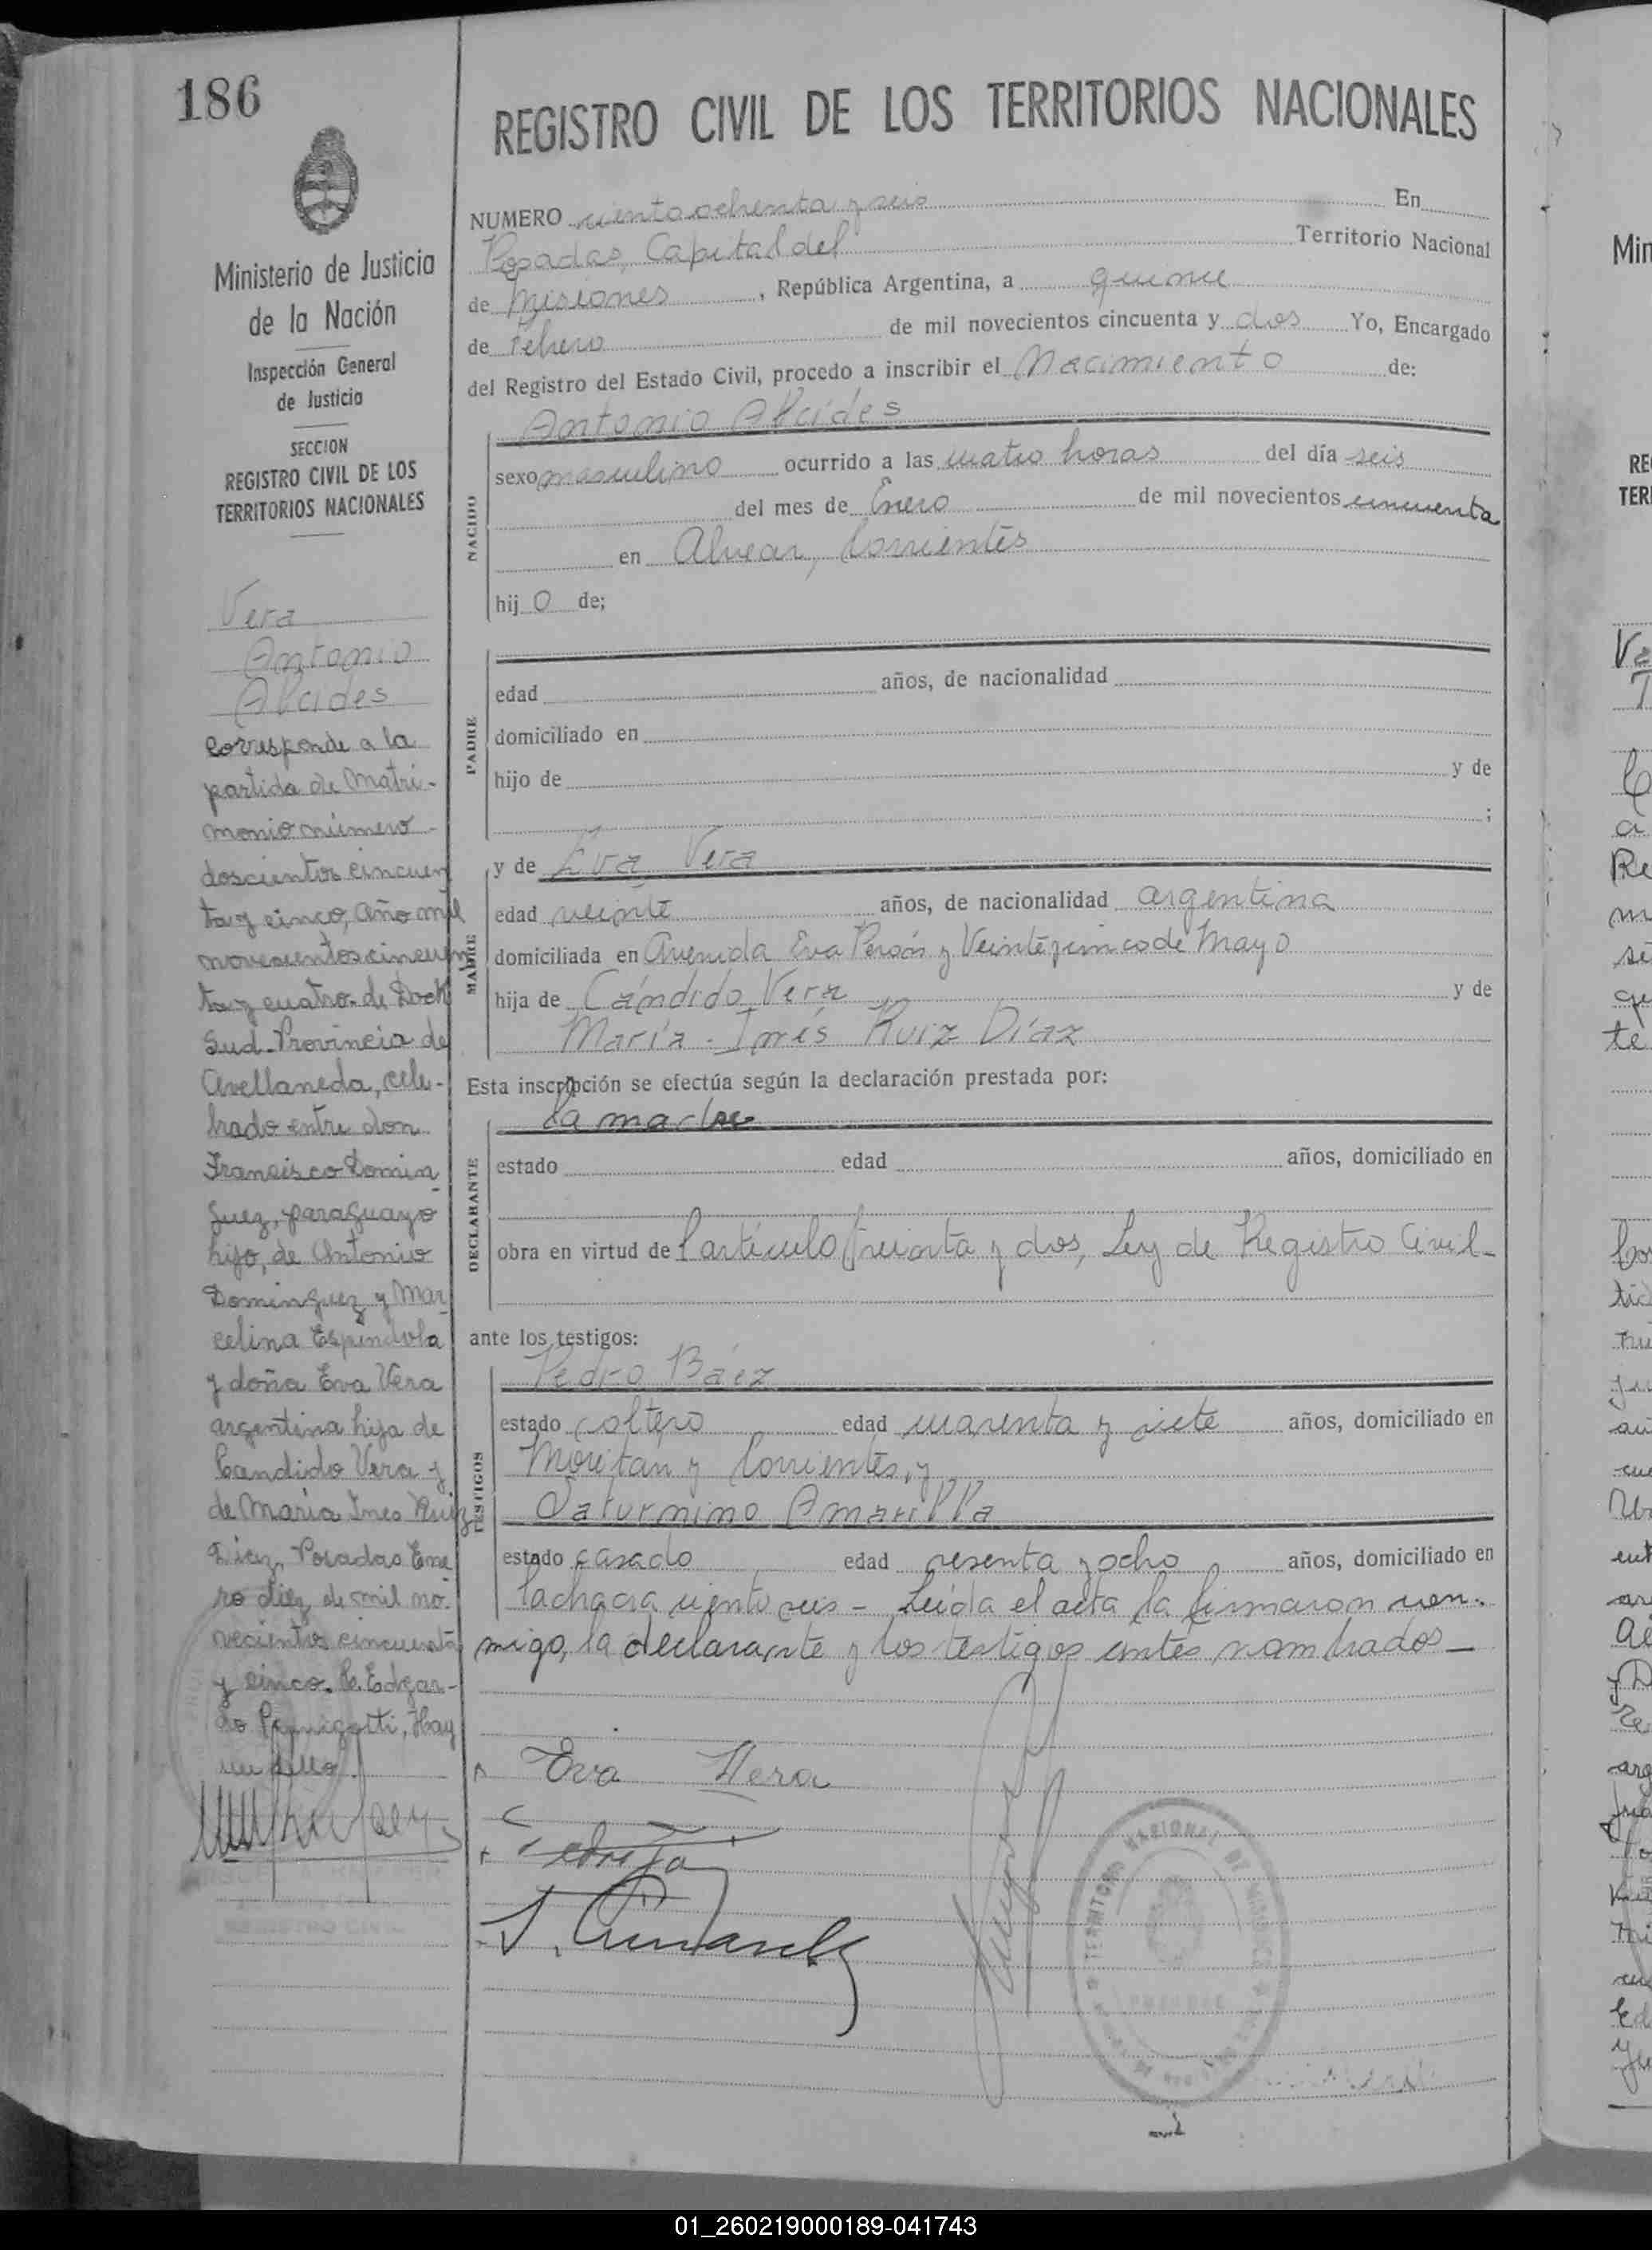 186
Ministerio de Justicia
de la Nación
Inspección General
de Justicia
SECCION
REGISTRO CIVIL DE LOS
TERRITORIOS NACIONALES
Vera
Antonio
Alcides
Corresponde a la
partida de Matri-
monio número
doscientos cincuen
ta y cinco, año mil
novecientos cincuen
ta y cuatro de Dock
Sud. Provincia de
Avellaneda, cele-
brado entre don
Francisco Domin
guez, paraguayo
hijo, de Antonio
Dominguez y Mar
celina Espindola
y doña Eva Vera
argentina hija de
Candido Vera y
de María Ines Ruiz
Diaz, Posadas Ene
ro diez de mil no-
vecientos cincuenta
y cinco. Edgar-
do Hay
un sello
REGISTRO CIVIL
REGISTRO CIVIL DE LOS TERRITORIOS NACIONALES
NUMERO ciento ochenta y seis En
Posadas, Capital del Territorio Nacional
de Misiones, República Argentina, a quince
de Febrero de mil novecientos cincuenta y dos Yo, Encargado
del Registro del Estado Civil, procedo a inscribir el Nacimiento de:
Antonio Alcides
NACIDO
sexo masculino ocurrido a las cuatro horas del día seis
del mes de Enero de mil novecientos cincuenta
en Alvear, Corrientes
hij o de;
PADRE
edad años, de nacionalidad
domiciliado en
hijo de y de
;
MADRE
y de Eva Vera
edad veinte años, de nacionalidad argentina
domiciliada en Avenida Eva Perón y Veinticinco de Mayo
hija de Cándido Vera y de
María Inés Ruiz Díaz
Esta inscripción se efectúa según la declaración prestada por:
la madre
DECLARANTE
estado edad años, domiciliado en
obra en virtud del artículo treinta y dos, Ley de Registro Civil-
ante los testigos:
TESTIGOS
Pedro Báez
estado soltero edad cuarenta y siete años, domiciliado en
Moritán y Corrientes, y
Saturnino Amarilla
estado casado edad sesenta y ocho años, domiciliado en
la chacra ciento seis - Leída el acta la firmaron con-
migo, la declarante y los testigos antes nombrados-
Eva Vera
TERRITORIO NACIONAL DE MISIONES
01_260219000189-041743